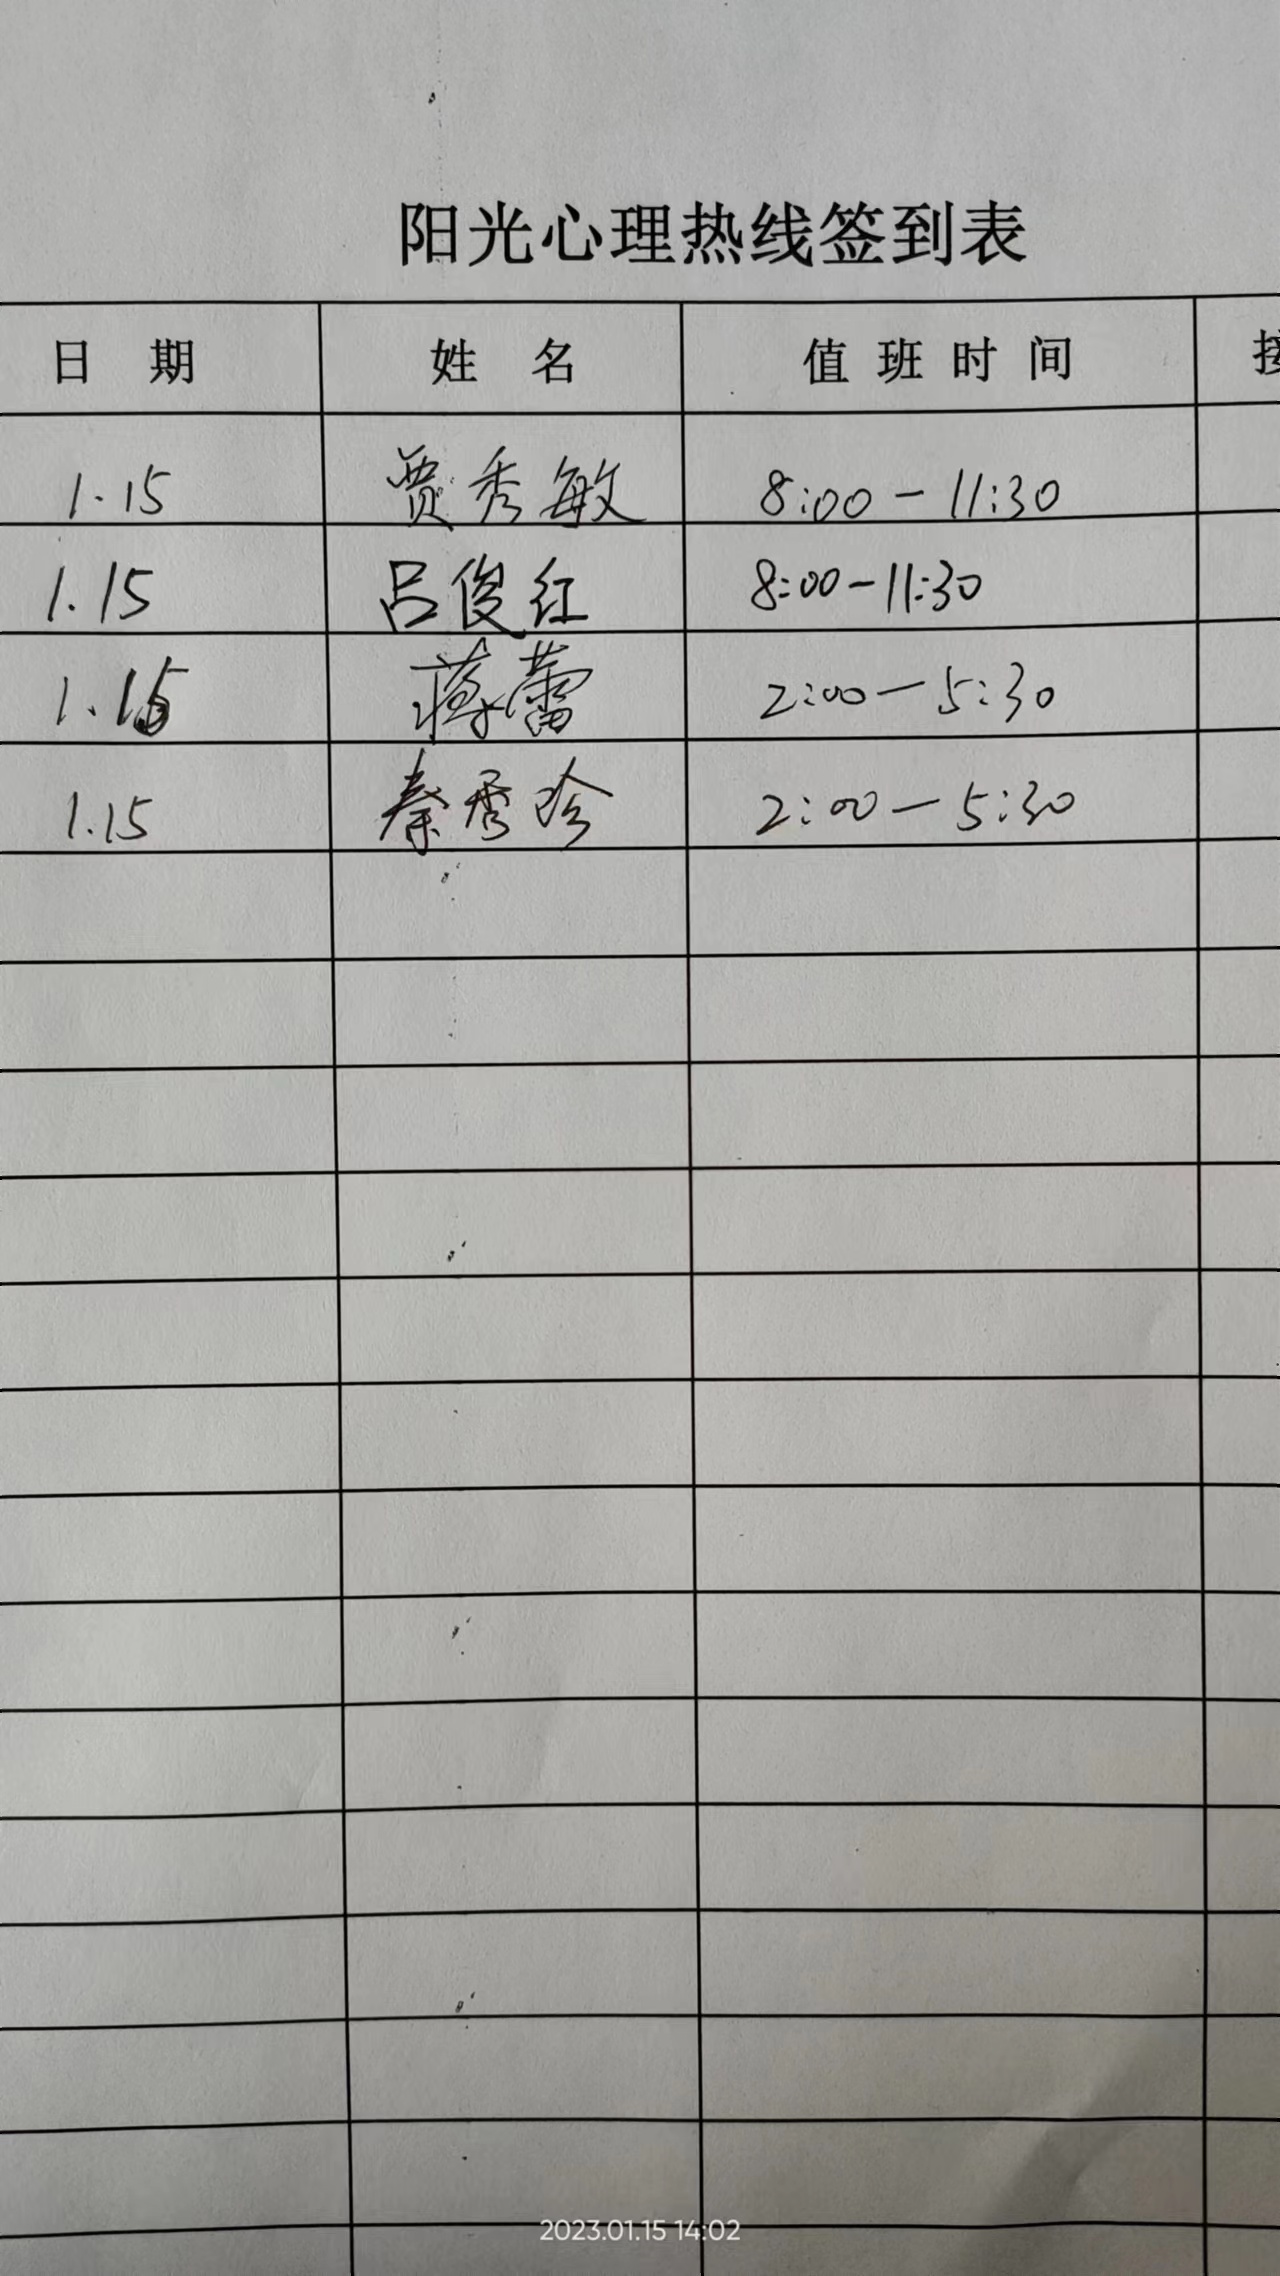 阳光心理热线签到表
日 期 姓 名 值 班 时 间
1.15 贾秀敏 8:00-11:30
1.15 吕俊红 8:00-11:30
1.15 蒋蕾 2:00-5:30
1.15 秦秀珍 2:00-5:30
2023.01.15 14:02